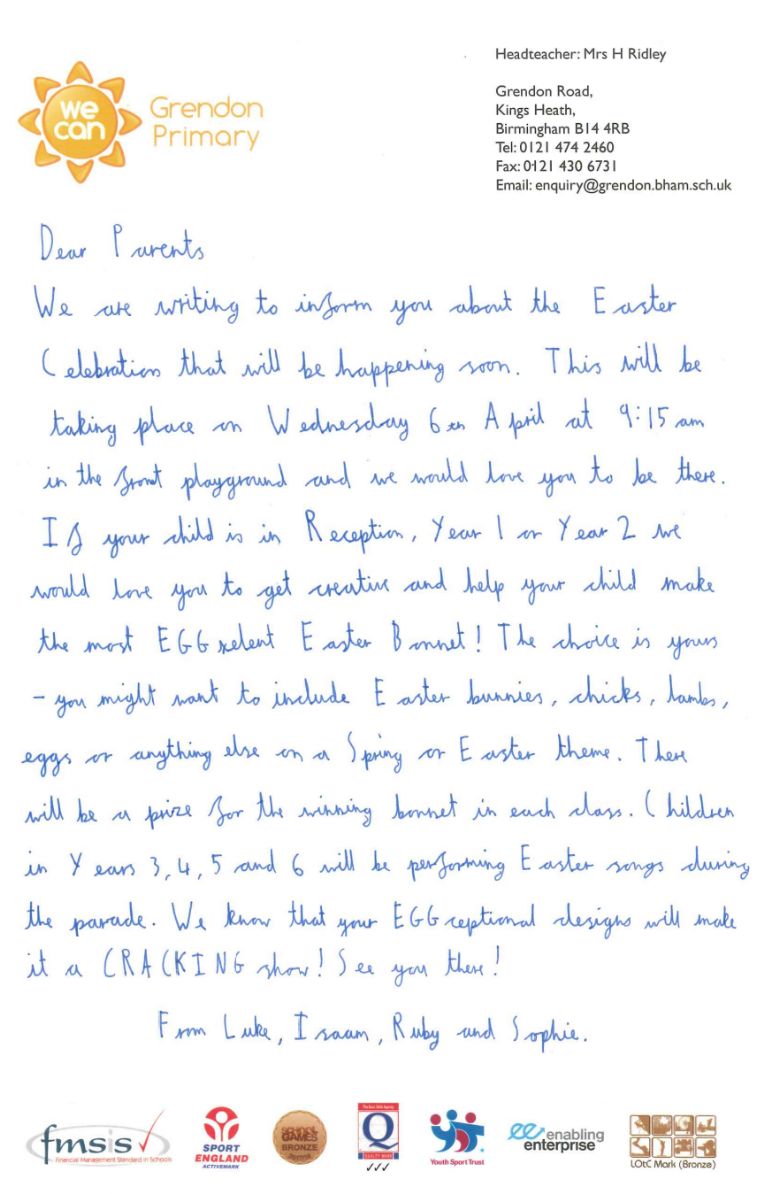 Headteacher: Mrs H Ridley
Grendon Road,
Kings Heath,
Birmingham B14 4RB
Tel: 0121 474 2460
Fax: 0121 430 6731
Email: enquiry@grendon.bham.sch.uk
we
can
Grendon
Primary
Dear Parents
We are writing to inform you about the Easter
Celebration that will be happening soon. This will be
taking place on Wednesday 6th April at 9:15 am
in the front playground and we would love you to be there.
If your child is in Reception, Year 1 or Year 2 we
would love you to get creative and help your child make
the most EGGxelent Easter Bonnet! The choice is yours
- you might want to include Easter bunnies, chicks, lambs,
eggs or anything else on a Spring or Easter theme. There
will be a prize for the winning bonnet in each class. Children
in Years 3, 4, 5 and 6 will be performing Easter songs during
the parade. We know that your EGGceptional designs will make
it a CRACKING show! See you there!
From Luke, Isaam, Ruby and Sophie.
fmsis
Financial Management Standard in Schools
SPORT
ENGLAND
ACTIVEMARK
SCHOOL
GAMES
BRONZE
Q
QUALITY MARK
Youth Sport Trust
ee enabling
enterprise
LOtC Mark (Bronze)